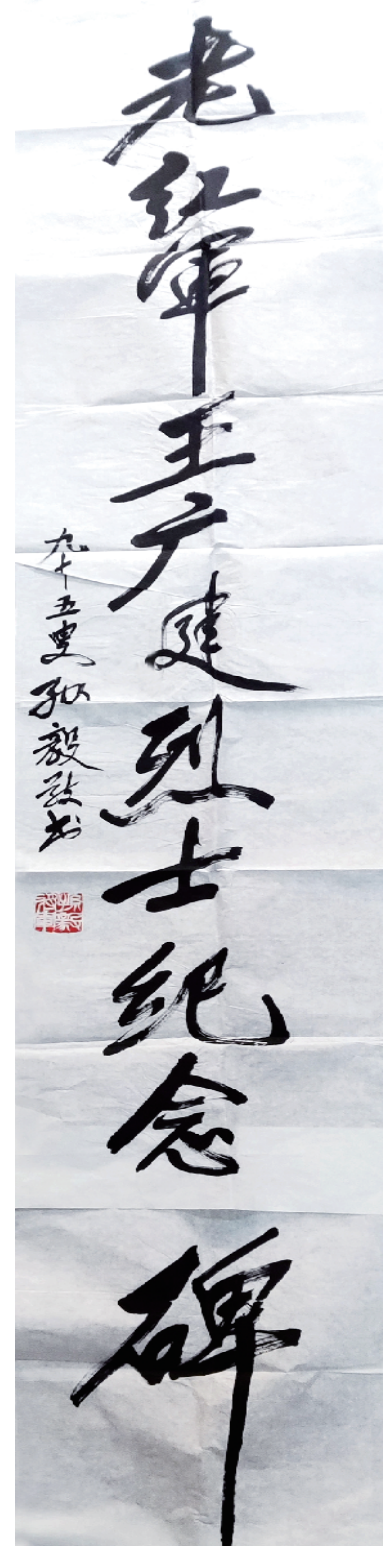 老红军王广建烈士纪念碑
九十五叟孙毅敬书